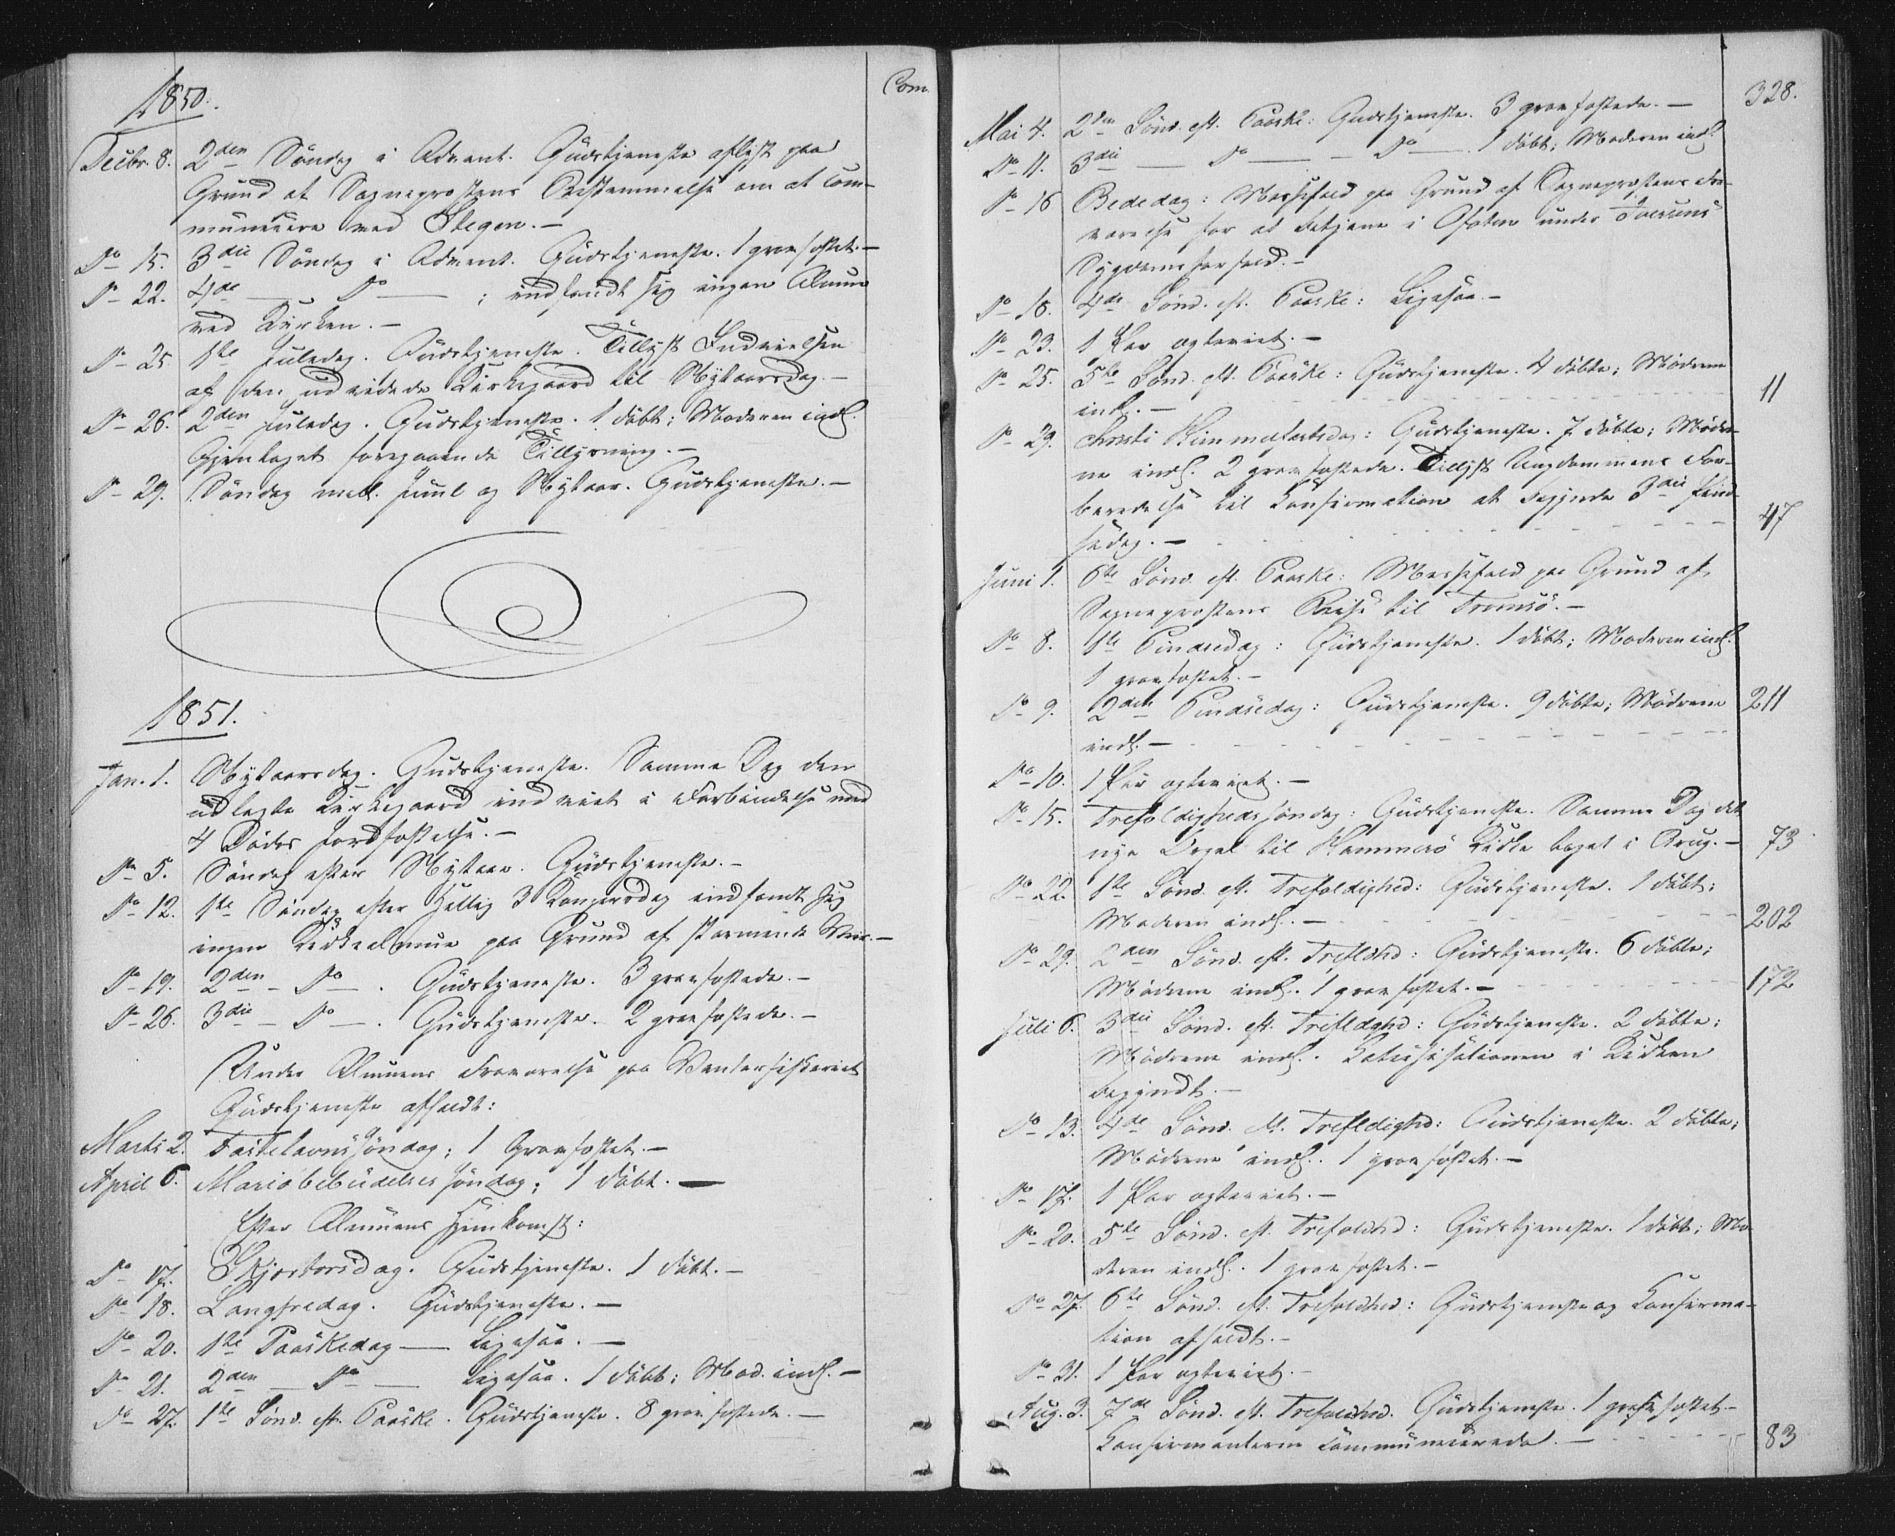 1850.
Com.
Decbr. 8. 2den Søndag i Advent. Gudstjeneste aflyst paa
Grund af Sognepræstens Bestemmelse om at com-
municere ved Stegen. —
Do 15. 3die Søndag i Advent. Gudstjeneste. 1 gravfæstet. —
Do 22. 4de — Do — ; indfandt sig ingen Almue
ved Kirken. —
Do 25. 1ste Juledag. Gudstjeneste. Tillyst Indvielsen
af den udvidede Kirkegaard til Nytaarsdag. —
Do 26. 2den Juledag. Gudstjeneste. 1 döbt; Moderen indl.
Gjentaget foregaaende Tillysning. —
Do 29. Söndag mell. Juul og Nytaar. Gudstjeneste. —
1851.
Jan. 1. Nytaarsdag. Gudstjeneste. Samme Dag den
udlagte Kirkegaard indviet i Forbindelse med
4 Dödes Jordfæstelse. —
Do 5. Söndag efter Nytaar. Gudstjeneste. —
Do 12. 1ste Söndag efter Hellig 3 Kongersdag indfandt sig
ingen Kirkealmue paa Grund af stormende Veir. —
Do 19. 2den — Do — . Gudstjeneste. 3 gravfæstede. —
Do 26. 3die — Do — . Gudstjeneste. 2 gravfæstede. —
Under Almuens Fraværelse paa Vinterfiskeriet
Gudstjeneste afholdt:
Marts 2. Fastelavnssöndag; 1 Gravfæstet. —
April 6. Mariæbebudelses söndag; 1 döbt. —
Efter Almuens Hjemkomst:
Do 17. Skjærtorsdag. Gudstjeneste. 1 döbt. —
Do 18. Langfredag. Gudstjeneste. —
Do 20. 1ste Paaskedag — Ligesaa. —
Do 21. 2den — Do — Ligesaa. 1 döbt; Mod. indl. —
Do 27. 1ste Sönd. eft. Paaske. Gudstjeneste. 8 gravfæstede. —
328.
Mai 4. 2den Sönd. eft. Paaske: Gudstjeneste. 3 gravfæstede. —
Do 11. 3die — Do — — Do — . 1 döbt; Moderen indl.
Do 16 Bededag: Messefald paa Grund af Sognepræstens Fra-
værelse for at betjene i Ofoten under
Sygdomsforfald. —
Do 18. 4de Sönd. eft. Paaske: Ligesaa. —
Do 23. 1 Par ægteviet. —
Do 25. 5te Sönd. eft. Paaske: Gudstjeneste. 4 döbte; Mödrene
indl. — 11
Do 29. Christi Himmelfartsdag: Gudstjeneste. 7 döbte; Mödre-
ne indl. 2 gravfæstede. Tillyst Ungdommens For-
beredelse til Konfirmation at begynde 3die Pind-
sedag. — 47
Juni 1. 6te Sönd. eft. Paaske: Messefald paa Grund af
Sognepræstens Reise til Tromsö. —
Do 8. 1ste Pindsedag: Gudstjeneste. 1 döbt; Moderen indl.
1 gravfæstet. —
Do 9. 2den Pindsedag: Gudstjeneste. 9 döbte; Mödrene
indl. — 211
Do 10. 1 Par ægteviet. —
Do 15. Trefoldighedssöndag: Gudstjeneste. Samme Dag det
nye Orgel til Hammerö Kirke taget i Brug. — 73
Do 22. 1ste Sönd. eft. Trefoldighed: Gudstjeneste. 1 döbt;
Moderen indl. — 202
Do 29. 2den Sönd. eft. Trefldhd: Gudstjeneste. 6 döbte;
Mödrene indl. 1 gravfæstet. — 172
Juli 6. 3die Sönd. eft. Trefldghd: Gudstjeneste. 2 döbte;
Mödrene indl. Katechisationen i Kirken
begyndt. —
Do 13. 4de Sönd. eft. Trefldighd: Gudstjeneste. 2 döbte;
Mödrene indl. 1 gravfæstet. —
Do 17. 1 Par ægteviet. —
Do 20. 5te Sönd. eft. Trefoldhd: Gudstjeneste. 1 döbt; Mo-
deren indl. 1 gravfæstet. —
Do 27. 6te Sönd. eft. Trefoldhed: Gudstjeneste og Konfirma-
tion afholdt. —
Do 31. 1 Par ægteviet. —
Aug. 3. 7de Sönd. eft. Trefoldhd. Gudstjeneste. 1 gravfæstet —
Konfirmanterne communicerede. — 83